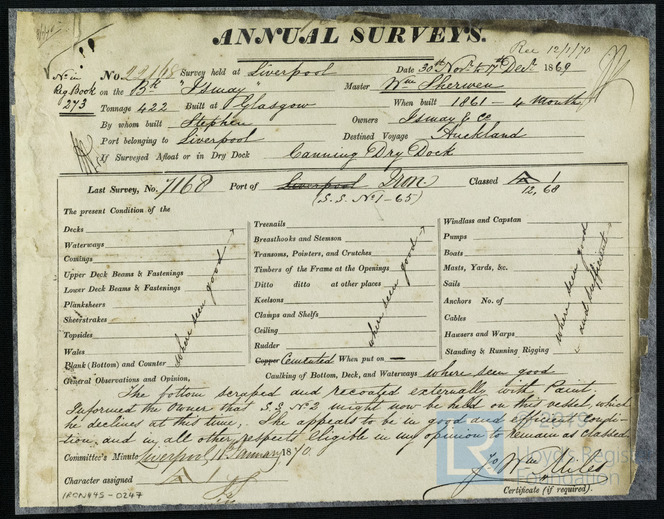 ANNUAL SURVEYS.
Rec 12/1/70
No. in Reg Book 273
No. 22168 Survey held at Liverpool Date 30th Novr & 7th Decr 1869
on the Bk "Ismay" Master Wm Sherwen
Tonnage 422 Built at Glasgow When built 1861 - 4 Month
By whom built Stephen Owners Ismay & Co
Port belonging to Liverpool Destined Voyage Auckland
If Surveyed Afloat or in Dry Dock Canning Dry Dock
Last Survey, No. 7168 Port of Liverpool Iron Classed A 1
(S.S. No 1-65) 12,68
The present Condition of the
Decks
Waterways
Comings
Upper Deck Beams & Fastenings
Lower Deck Beams & Fastenings
Planksheers
Sheerstrakes
Topsides
Wales
Plank (Bottom) and Counter
where seen good
Treenails
Breasthooks and Stemson
Transoms, Pointers, and Crutches
Timbers of the Frame at the Openings
Ditto ditto at other places
Keelsons
Clamps and Shelfs
Ceiling
Rudder
Copper Cemented When put on —
where seen good
Windlass and Capstan
Pumps
Boats
Masts, Yards, &c.
Sails
Anchors No. of
Cables
Hawsers and Warps
Standing & Running Rigging
where seen good and sufficient
Caulking of Bottom, Deck, and Waterways where seen good
General Observations and Opinion,
The bottom scraped and recoated externally with Paint,
Informed the Owner that S.S. No 2 might now be held on this vessel, which
he declines at this time; She appears to be in good and efficient condi-
tion, and in all other respects Eligible in my opinion to remain as Classed
Committee's Minute Liverpool, January 1870.
Character assigned A 1
Wm Stiles
Certificate (if required).
IRON445-0247
LR
Lloyd's Register
Foundation